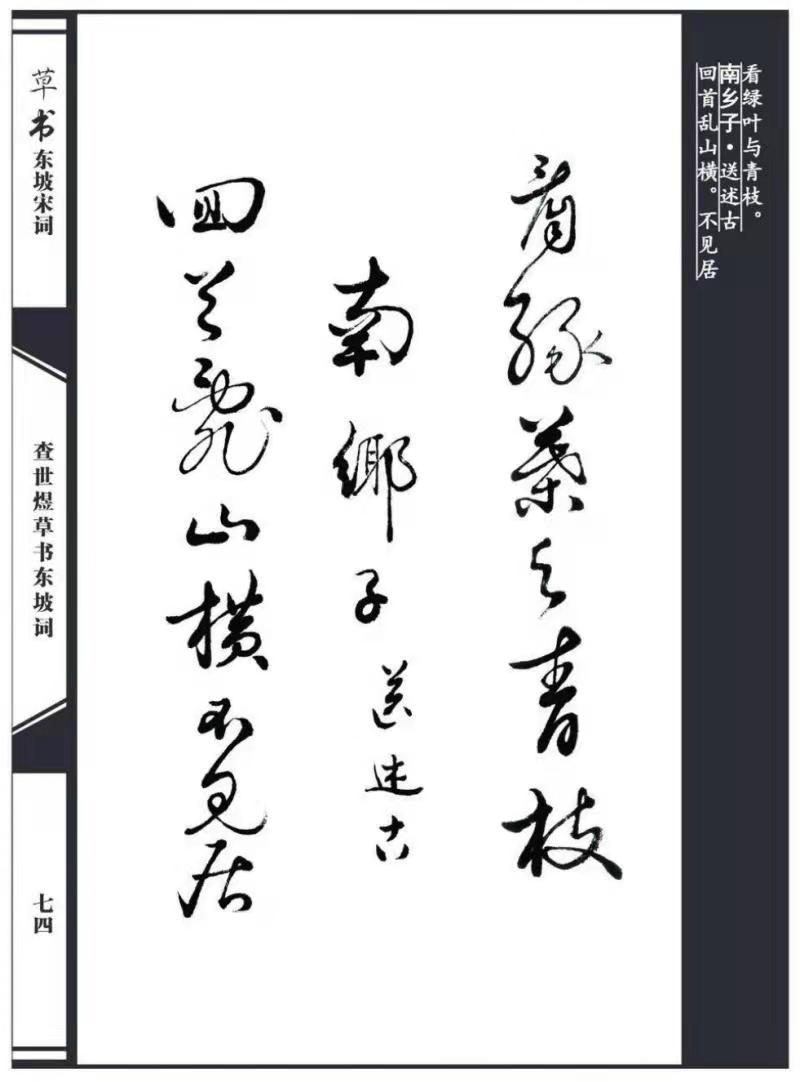 看绿叶与青枝。
南乡子·送述古
回首乱山横。不见居
看綠葉与青枝
南鄉子 送述古
回首亂山横不見居
草书东坡宋词
查世煜草书东坡词
七四